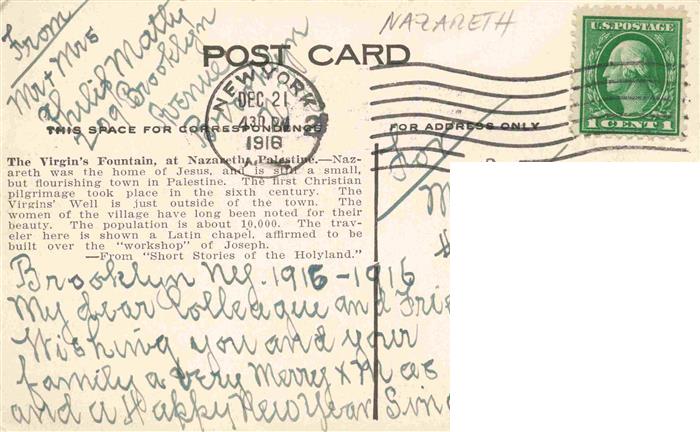 NAZARETH
U.S. POSTAGE
From
Mr + Mrs
Philip Math
209 Brooklyn
Avenue
Brooklyn
POST CARD
NEW YORK
DEC 21
430 PM
1916
1 CENT 1
THIS SPACE FOR CORRESPONDENCE
FOR ADDRESS ONLY
The Virgin's Fountain, at Nazareth, Palestine.—Naz-
areth was the home of Jesus, and is still a small,
but flourishing town in Palestine. The first Christian
pilgrimage took place in the sixth century. The
Virgins' Well is just outside of the town. The
women of the village have long been noted for their
beauty. The population is about 10,000. The trav-
eler here is shown a Latin chapel, affirmed to be
built over the "workshop" of Joseph.
—From "Short Stories of the Holyland."
Brooklyn N.Y. 1916-1916
My dear Colleague and Frie
Wishing you and your
family a very Merry XMas
and a Happy New Year Sinc